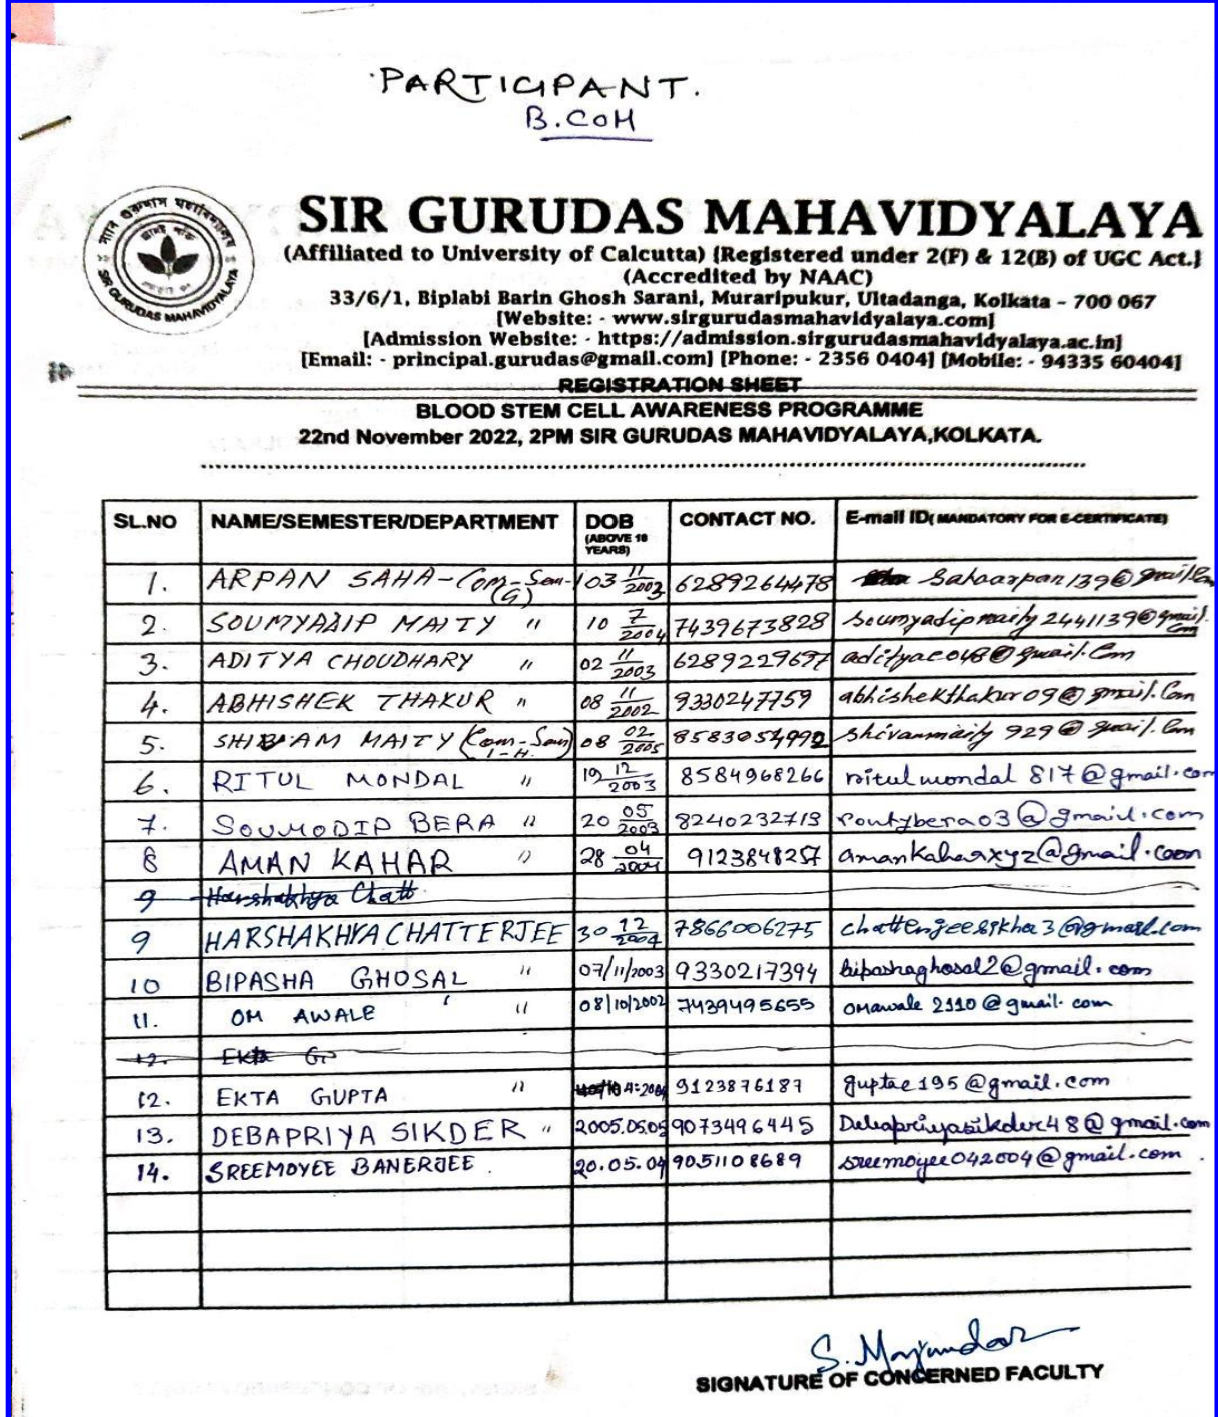 PARTICIPANT.
B.COM
স্যার গুরুদাস মহাবিদ্যালয়
SIR GURUDAS MAHAVIDYALAYA
SIR GURUDAS MAHAVIDYALAYA
(Affiliated to University of Calcutta) {Registered under 2(F) & 12(B) of UGC Act.}
(Accredited by NAAC)
33/6/1, Biplabi Barin Ghosh Sarani, Muraripukur, Ultadanga, Kolkata - 700 067
[Website: - www.sirgurudasmahavidyalaya.com]
[Admission Website: - https://admission.sirgurudasmahavidyalaya.ac.in]
[Email: - principal.gurudas@gmail.com] [Phone: - 2356 0404] [Mobile: - 94335 60404]
REGISTRATION SHEET
BLOOD STEM CELL AWARENESS PROGRAMME
22nd November 2022, 2PM SIR GURUDAS MAHAVIDYALAYA,KOLKATA.
SL.NO NAME/SEMESTER/DEPARTMENT DOB (ABOVE 18 YEARS) CONTACT NO. E-mail ID( MANDATORY FOR E-CERTIFICATE)
1. ARPAN SAHA-Com-Sem-1 (G) 03 11/2003 6289264478 Sahaarpan139@gmail.com
2. SOUMYADIP MAITY " 10 7/2004 7439673828 soumyadipmaity2441139@gmail.com
3. ADITYA CHOUDHARY " 02 11/2003 6289229697 adityac048@gmail.com
4. ABHISHEK THAKUR " 08 11/2002 9330247759 abhishekthakur09@gmail.com
5. SHIVAM MAITY (Com-Sem I-H) 08 02/2005 8583054992 shivammaity929@gmail.com
6. RITUL MONDAL " 19 12/2003 8584968266 ritulmondal817@gmail.com
7. SOUMODIP BERA " 20 05/2003 8240232713 rontybera03@gmail.com
8 AMAN KAHAR " 28 04/2004 9123848257 amankaharxyz@gmail.com
9 Harshakhya Chatt
9 HARSHAKHYA CHATTERJEE 30 12/2004 7866006275 chatterjeesikha3@gmail.com
10 BIPASHA GHOSAL " 07/11/2003 9330217394 bipashaghosal2@gmail.com
11. OM AWALE " 08/10/2002 7439495655 omawale2110@gmail.com
12. Ekta G
12. EKTA GUPTA " 4:2004 9123876187 guptae195@gmail.com
13. DEBAPRIYA SIKDER " 2005.05.05 9073496445 Debapriyasikder48@gmail.com
14. SREEMOYEE BANERJEE. 20.05.04 9051108689 sreemoyee042004@gmail.com
S. Majumdar
SIGNATURE OF CONCERNED FACULTY